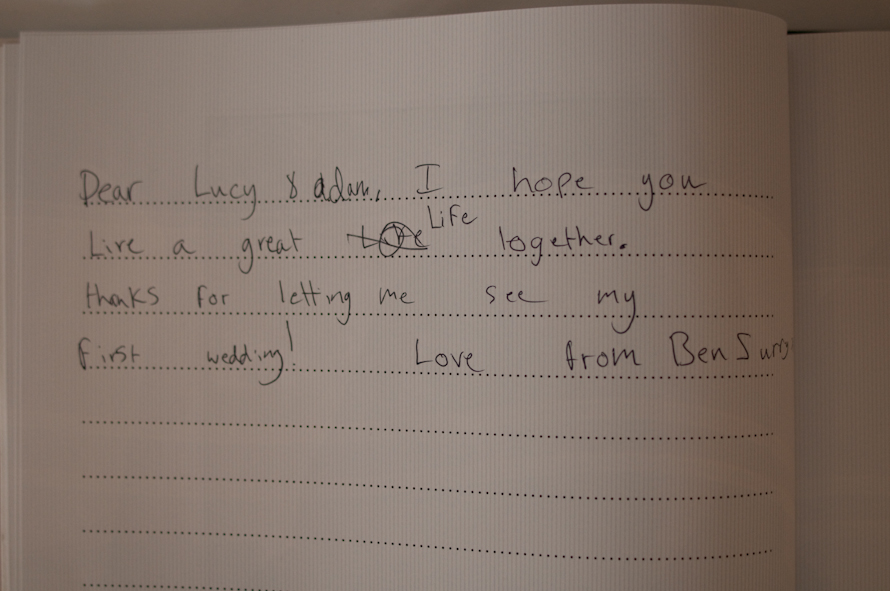 Dear Lucy & adam, I hope you
Live a great Life together.
thanks for letting me see my
first wedding! Love from Ben